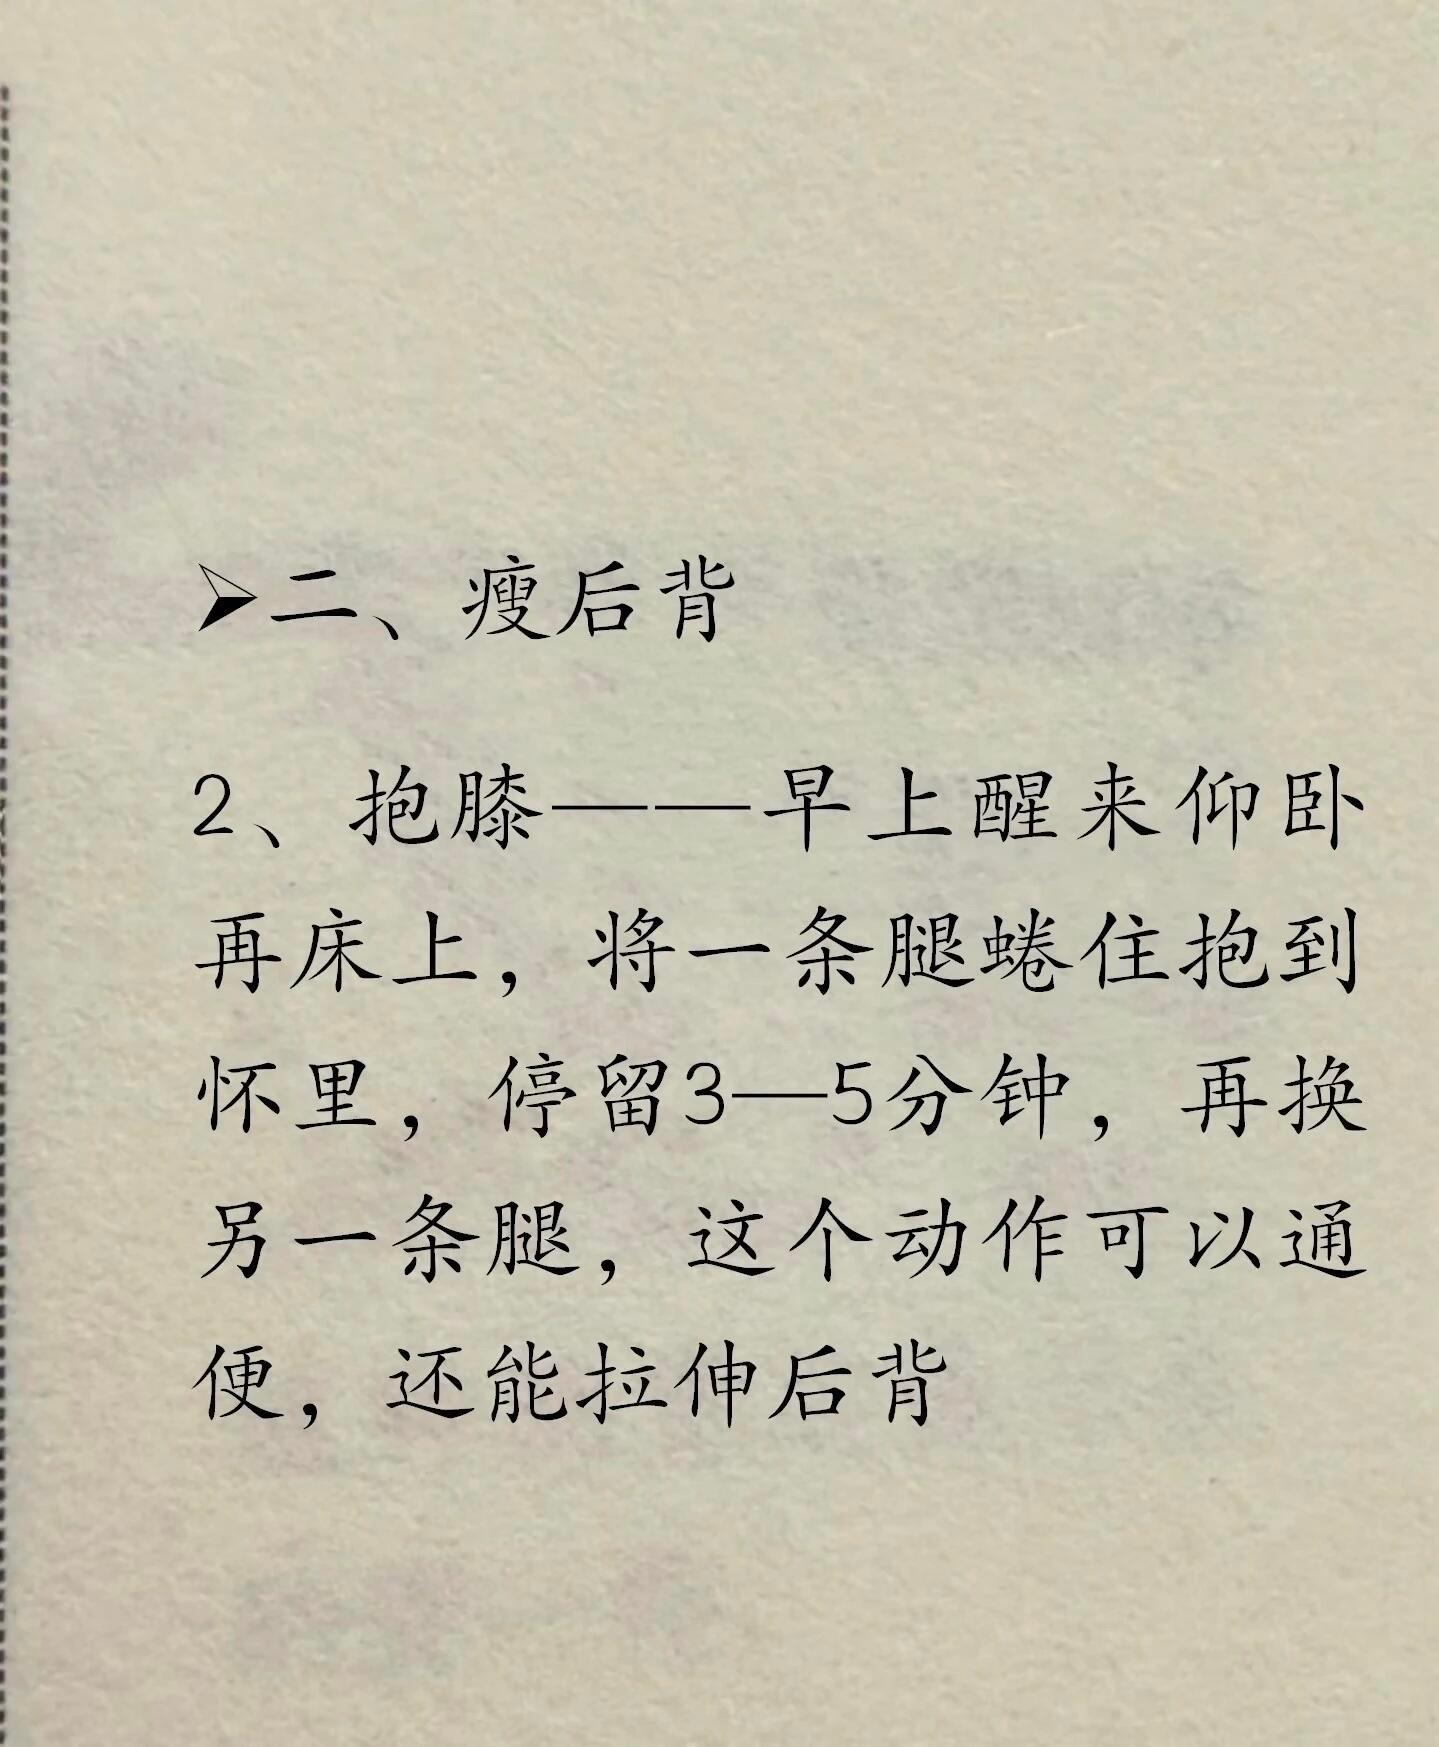 ➢二、瘦后背
2、抱膝——早上醒来仰卧
再床上，将一条腿蜷住抱到
怀里，停留3—5分钟，再换
另一条腿，这个动作可以通
便，还能拉伸后背